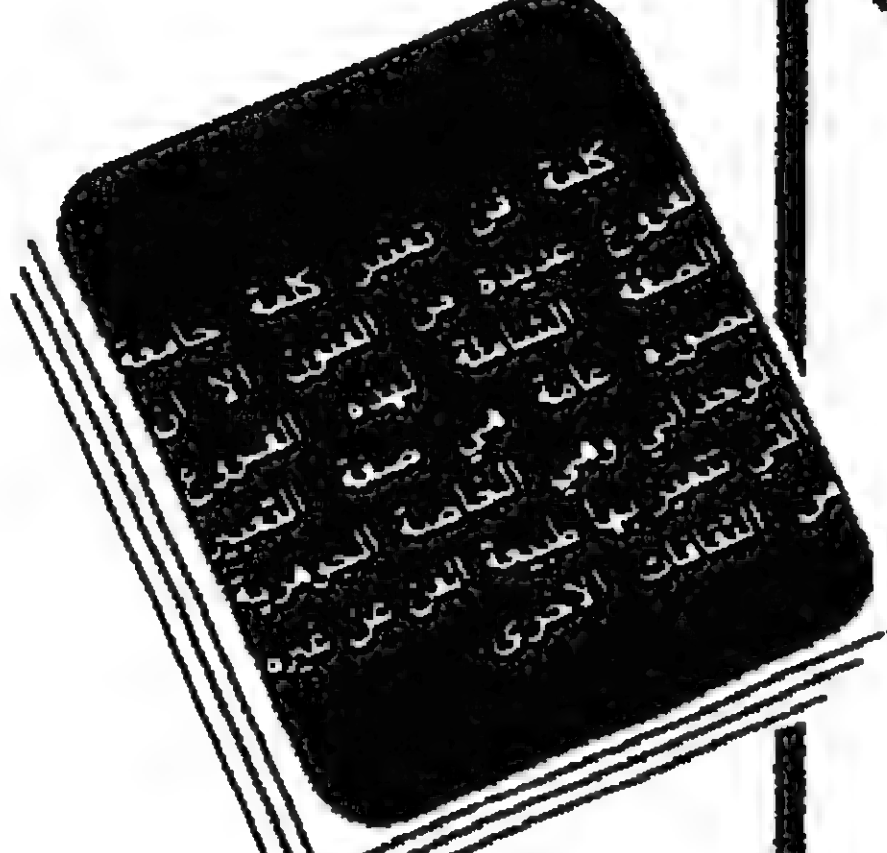 كلمة فن تعتبر كلمة جامعة
لفروع عديدة من الفنون الا ان
الصفة الشاملة لهذه الفروع
بصورة عامة هي صفة التعبير
الوجداني وهي الخاصة الجوهرية
التي تتميز بها طبيعة الفن عن غيره
من الثقافات الاخرى